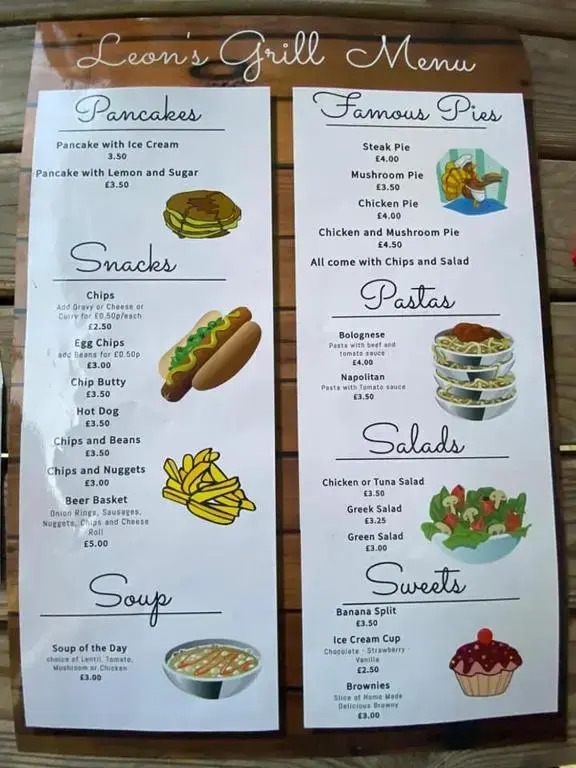 Leon's Grill Menu
Pancakes
Pancake with Ice Cream
3.50
Pancake with Lemon and Sugar
£3.50
Snacks
Chips
Add Gravy or Cheese or
Curry for £0.50p/each
£2.50
Egg Chips
add Beans for £0.50p
£3.00
Chip Butty
£3.50
Hot Dog
£3.50
Chips and Beans
£3.50
Chips and Nuggets
£3.00
Beer Basket
Onion Rings, Sausages,
Nuggets, Chips and Cheese
Roll
£5.00
Soup
Soup of the Day
choice of Lentil, Tomato,
Mushroom or Chicken
£3.00
Famous Pies
Steak Pie
£4.00
Mushroom Pie
£3.50
Chicken Pie
£4.00
Chicken and Mushroom Pie
£4.50
All come with Chips and Salad
Pastas
Bolognese
Pasta with beef and
tomato sauce
£4.00
Napolitan
Pasta with Tomato sauce
£3.50
Salads
Chicken or Tuna Salad
£3.50
Greek Salad
£3.25
Green Salad
£3.00
Sweets
Banana Split
£3.50
Ice Cream Cup
Chocolate - Strawberry -
Vanille
£2.50
Brownies
Slice of Home Made
Delicious Browny
£3.00